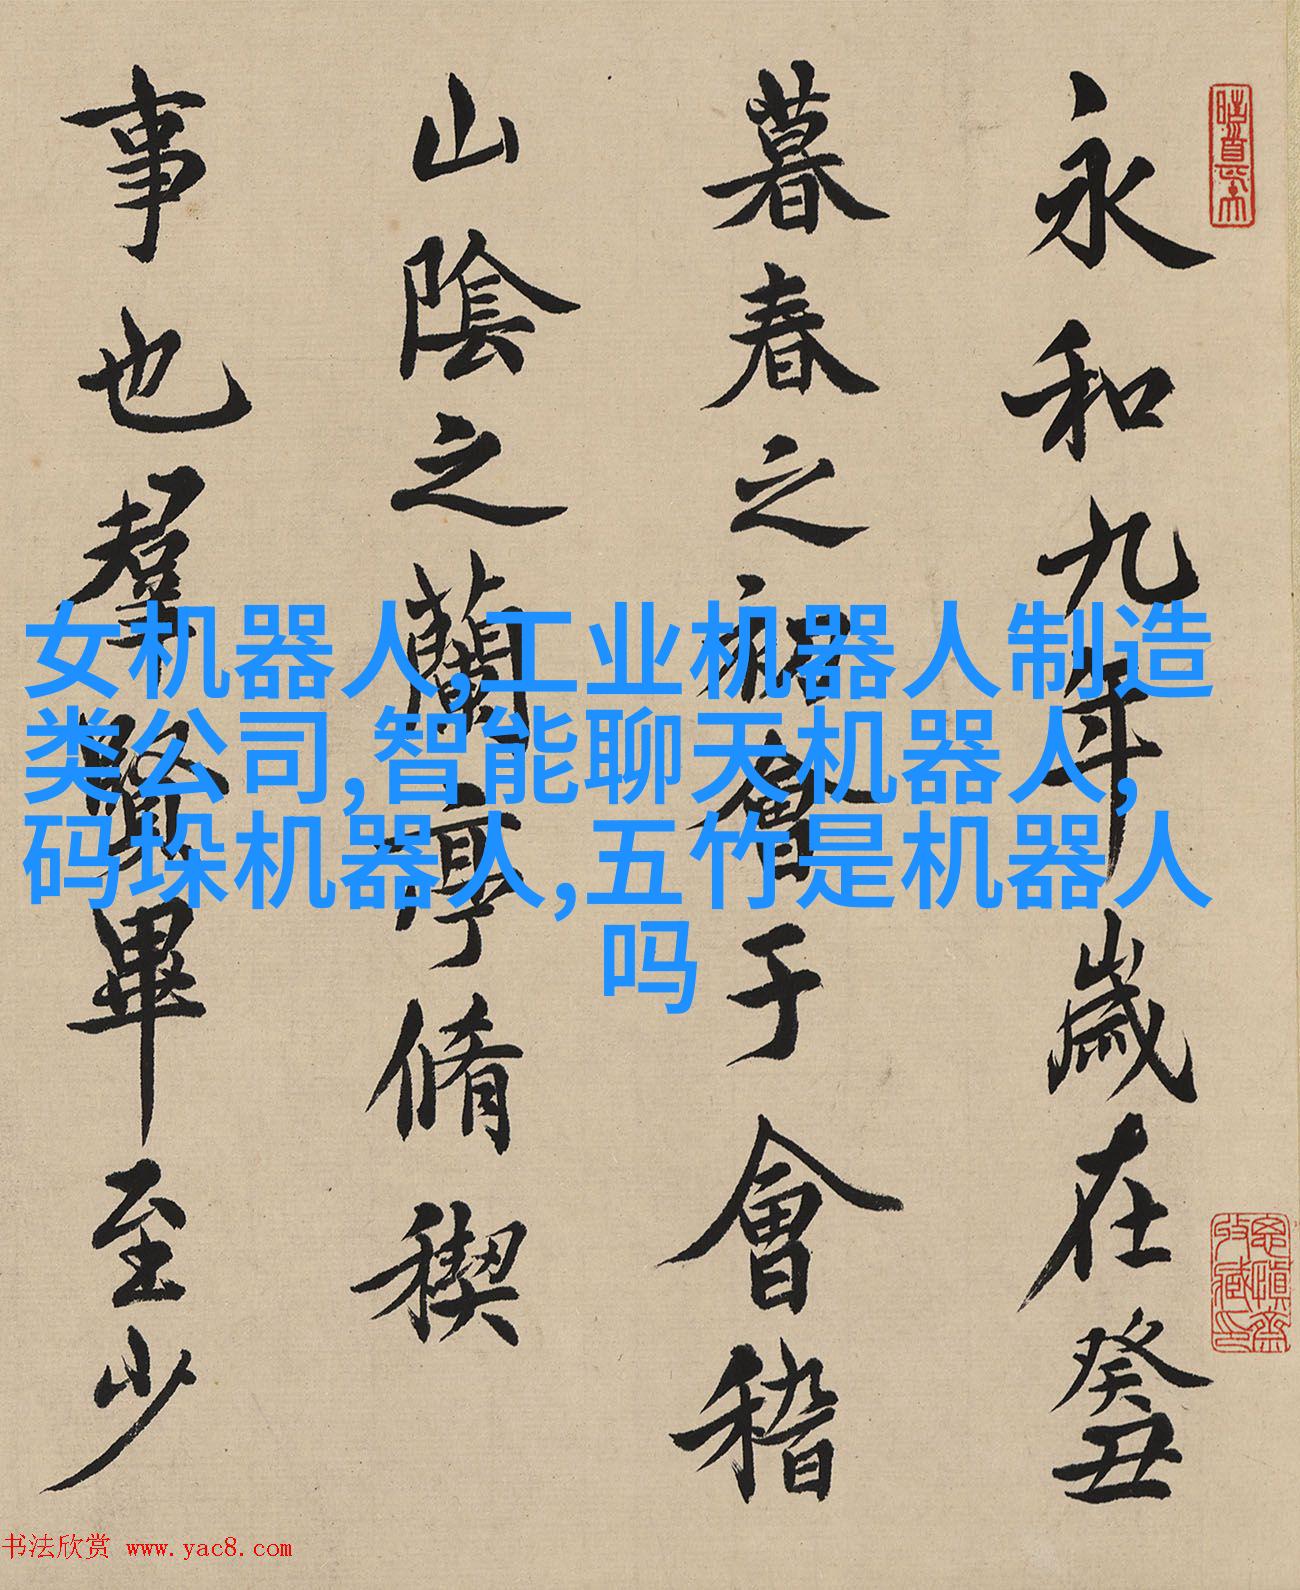 永和九年歲在癸丑
暮春之初會于會稽
山陰之蘭亭脩稧
事也羣賢畢至少
女机器人,工业机器人制造
类公司,智能聊天机器人,
码垛机器人,五竹是机器人
吗
书法欣赏 www.yac8.com